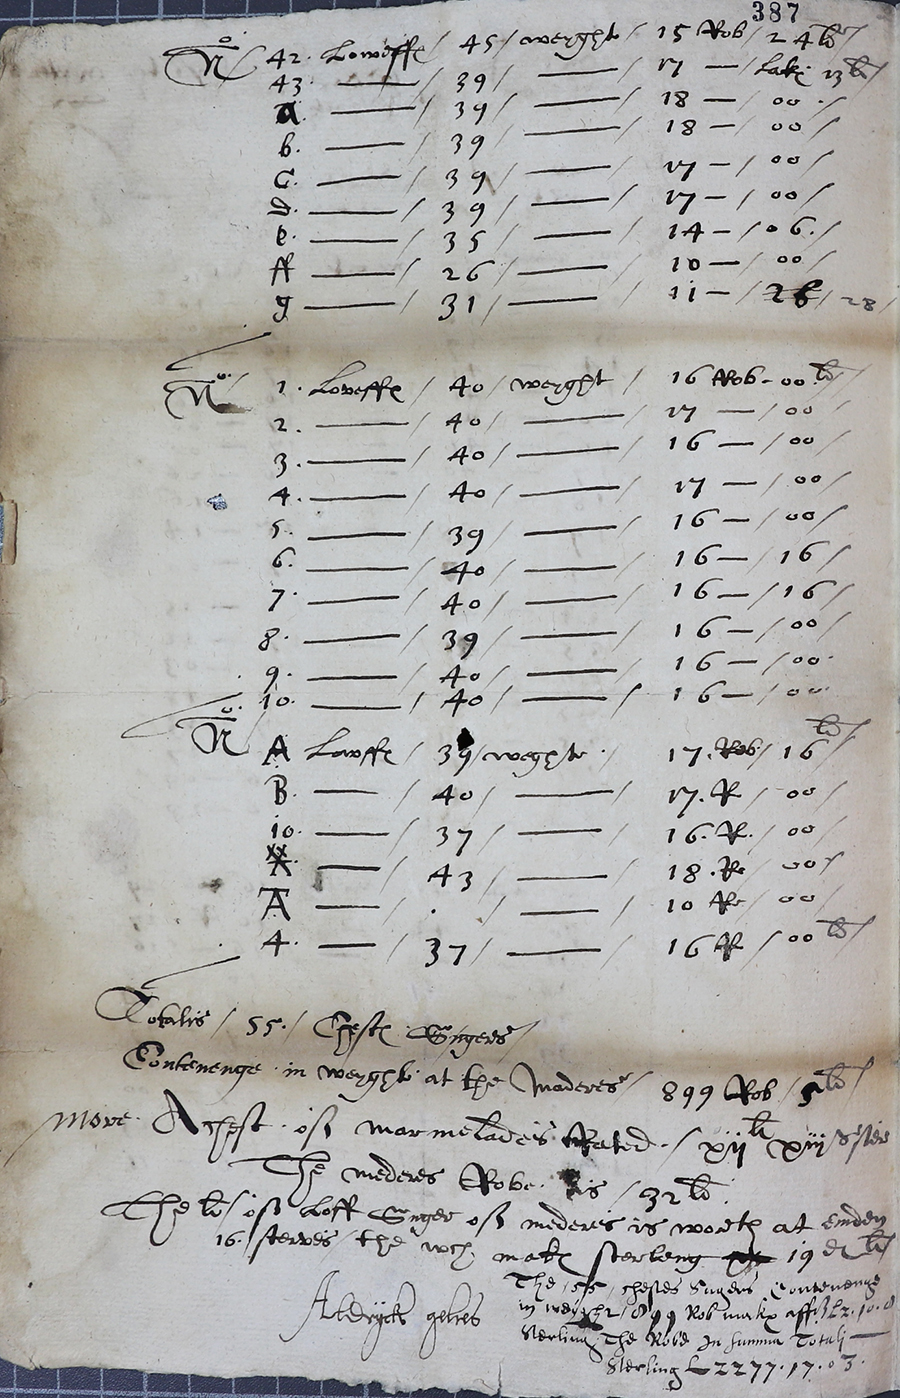 387
No 42. Loweffe / 45 / weyght / 15 Rob / 24 lb
43. — / 39 / — / 17 — / Lake 13 lb
a — / 39 / — / 18 — / 00 /
b. — / 39 / — / 18 — / 00 /
C. — / 39 / — / 17 — / 00 /
D. — / 39 / — / 17 — / 00 /
e. — / 35 / — / 14 — / 06. /
ff — / 26 / — / 10 — / 00 /
g — / 31 / — / 11 — / 28
No 1. Loveffe / 40 / weyght / 16 Rob - 00 lb
2. — / 40 / — / 17 — / 00 /
3. — / 40 / — / 16 — / 00 /
4. — / 40 / — / 17 — / 00 /
5. — / 39 / — / 16 — / 00 /
6. — / 40 / — / 16 — / 16 /
7. — / 40 / — / 16 — / 16 /
8. — / 39 / — / 16 — / 00 /
9. — / 40 / — / 16 — / 00
10. — / 40 / — / 16 — / 00
No A Lowffe / 39 / weghte / 17. Rob / 16 lb
B. — / 40 / — / 17. R / 00 /
10. — / 37 / — / 16. R. / 00 /
— / 43 / — / 18. R / 00 /
A — / . / — / 10 R / 00 /
4. — / 37 / — / 16 R / 00 lb
Totalis / 55. / Chest Sugers /
Contenenge in weyght at the Maderes / 899 Rob / 5 lb
More A chest off marmelades Rated / xij li xiij s ster
The mederes Robe is / 32 lb.
The lb / off Loff Suger off mederis is worth at Emden
16. sterves the wch mak sterleng 19 d lb
The / 55 / chestes Sugers Contenenge
Aldryck gelres
in weyght / 899 Rob 2. 10. 8
Sterling The Robe In Summa Totall —
Sterling L 2277. 17. 03.